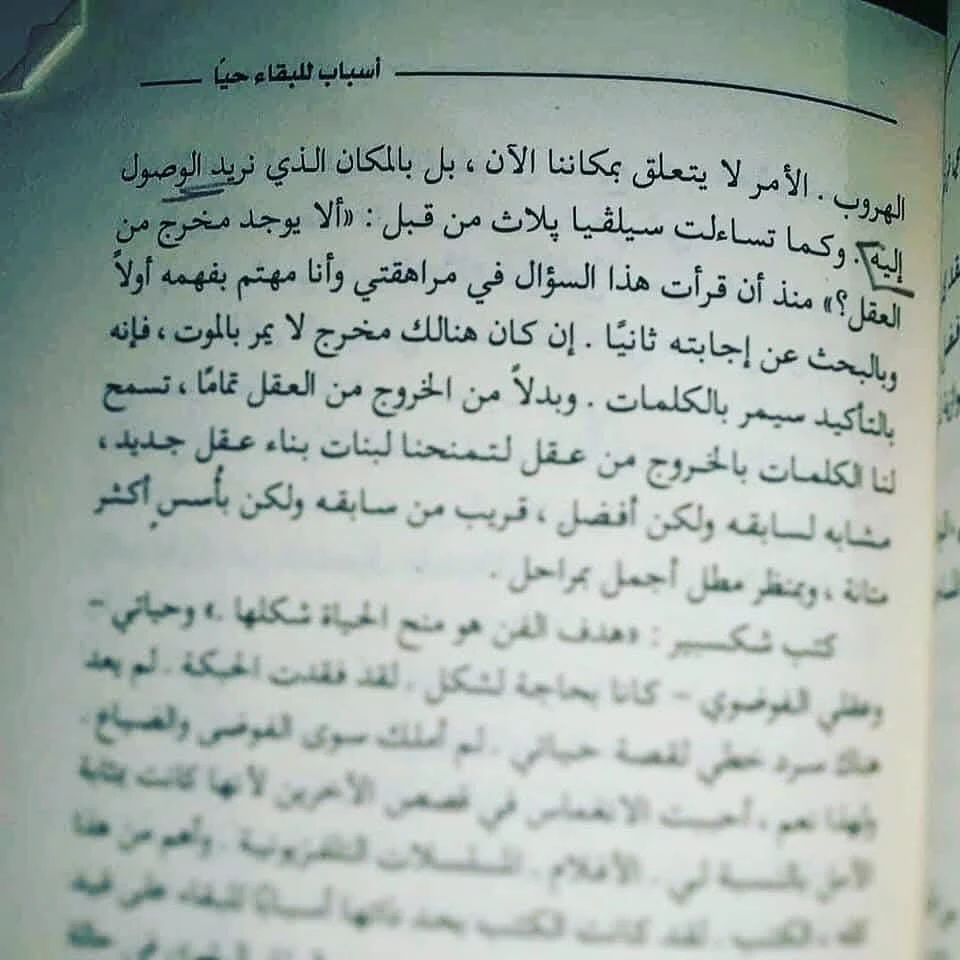 أسباب للبقاء حيًا
الهروب . الأمر لا يتعلق بمكاننا الآن ، بل بالمكان الذي نريد الوصول
إليه . وكما تساءلت سيلڤيا پلاث من قبل : «ألا يوجد مخرج من
العقل؟» منذ أن قرأت هذا السؤال في مراهقتي وأنا مهتم بفهمه أولاً
وبالبحث عن إجابته ثانيًا . إن كان هنالك مخرج لا يمر بالموت ، فإنه
بالتأكيد سيمر بالكلمات . وبدلاً من الخروج من العقل تمامًا ، تسمح
لنا الكلمات بالخروج من عقل لتمنحنا لبنات بناء عقل جديد ،
مشابه لسابقه ولكن أفضل ، قريب من سابقه ولكن بأُسسٍ أكثر
متانة ، وبمنظر مطل أجمل بمراحل .
كتب شكسبير : «هدف الفن هو منح الحياة شكلها .» وحياتي –
وعقلي الفوضوي – كانا بحاجة لشكل . لقد فقدت الحبكة . لم يعد
هناك سرد خطي لقصة حياتي . لم أملك سوى الفوضى والضياع .
ولهذا نعم ، أحببت الانغماس في قصص الآخرين لأنها كانت بمثابة
الأمل بالنسبة لي . الأفلام . المسلسلات التلفزيونية . وأهم من هذا
كله ، الكتب . لقد كانت الكتب بحد ذاتها أسبابًا للبقاء على قيد